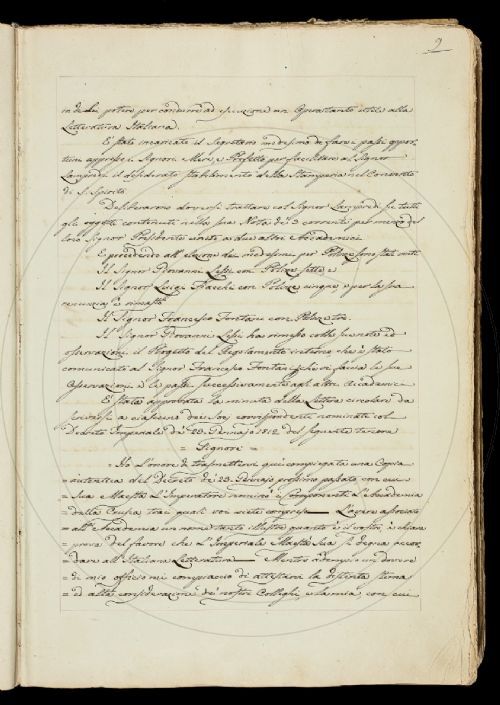 2
in di Lei potere per condurre ad esecuzione un Opera tanto utile alla
Letteratura Italiana.
E' stato incaricato il Segretario medesimo di fare i passi oppor,
tuni appresso i Signori Meri e Prefetto per facilitare al Signor
Lampredi il desiderato stabilimento della Stamperia nel Convento
di S. Spirito
Deliberarono doversi trattare col Signor Lampredi su tutti
gli oggetti contenuti nella sua Nota de' 9 corrente per mezzo del
loro Signor Presidente unito a due altri Accademici
E proceduto all' elezione dei medesimi per Polizze sono stati vinti
Il Signor Giovanni Lessi con Polizze sette e
Il Signor Luigi Fiacchi con Polizze cinque e per la sua
renunzia è rimasto
Il Signor Francesco Fontani con Polizze tre.
Il Signor Giovanni Lessi ha rimesso colle sue note ed
osservazioni il Progetto del Regolamento interno che è stato
comunicato al Signor Francesco Fontani che vi faccia le sue
Osservazioni e le passi successivamente agl' altri Accademici
E' stata approvata la minuta della Lettera circolare da
scriversi a ciascuno dei Soci corrispondenti nominati col
Decreto Imperiale de' 23 Gennajo 1812 del seguente tenore
= Signore =
= Ho l'onore di trasmetterle qui compiegata una Copia
= autentica del Decreto de' 23 Gennajo prossimo passato con cui
= Sua Maestà L'Imperatore nominò i Componenti L'Accademia
= della Crusca tra i quali voi siete compreso — L'avere associato
= all' Accademia un nome tanto illustre quanto è il vostro, è chiara
= prova del favore che L'Imperiale Maestà Sua si degna accor,
= dare all' Italiana Letteratura — Mentre adempio un dovere
= di mio officio mi compiaccio di attestarvi la distinta stima
= ed alta considerazione de' nostri Colleghi e la mia con cui